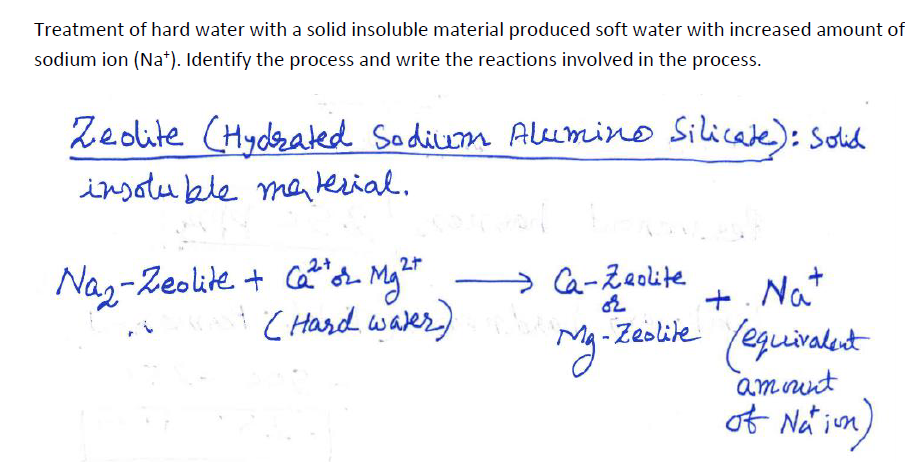 Treatment of hard water with a solid insoluble material produced soft water with increased amount of
sodium ion (Na⁺). Identify the process and write the reactions involved in the process.
Zeolite (Hydrated Sodium Alumino Silicate): Solid
insoluble material.
Na₂-Zeolite + Ca²⁺ or Mg²⁺ ⟶ Ca-Zeolite + Na⁺
(Hard water) or
Mg-Zeolite (equivalent
amount
of Na⁺ ion)